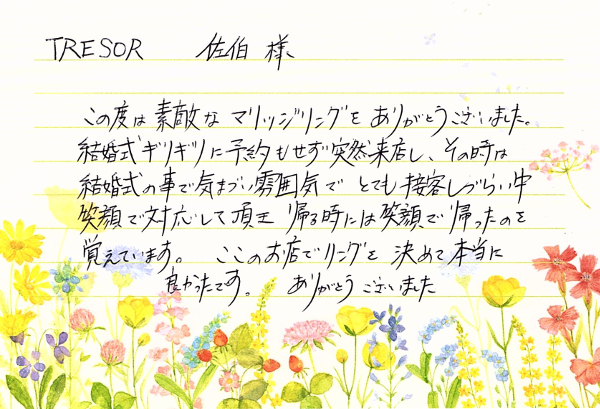 TRESOR 佐伯 様
この度は素敵なマリッジリングをありがとうございました。
結婚式ギリギリに予約もせず突然来店し、その時は
結婚式の事で気まづい雰囲気でとても接客しづらい中
笑顔で対応して頂き帰る時には笑顔で帰ったのを
覚えています。ここのお店でリングを決めて本当に
良かったです。ありがとうございました